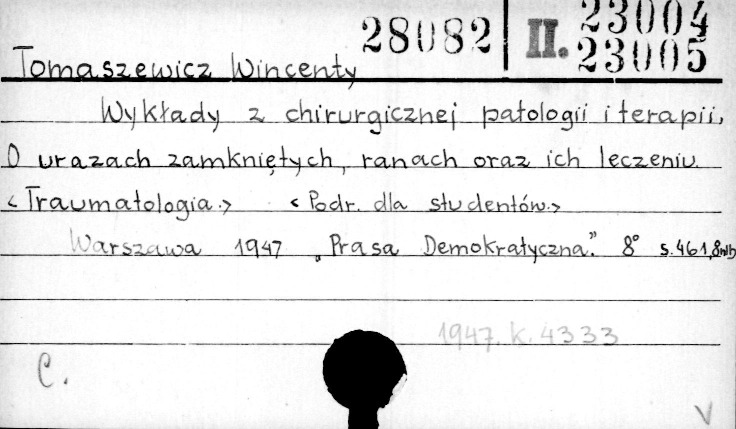 28082 II. 23004
23005
Tomaszewicz Wincenty
Wykłady z chirurgicznej patologii i terapii,
O urazach zamkniętych, ranach oraz ich leczeniu.
<Traumatologia.> <Podr. dla studentów.>
Warszawa 1947 „Prasa Demokratyczna." 8° s. 461, 8nlb
1947. K. 4333
C.
V